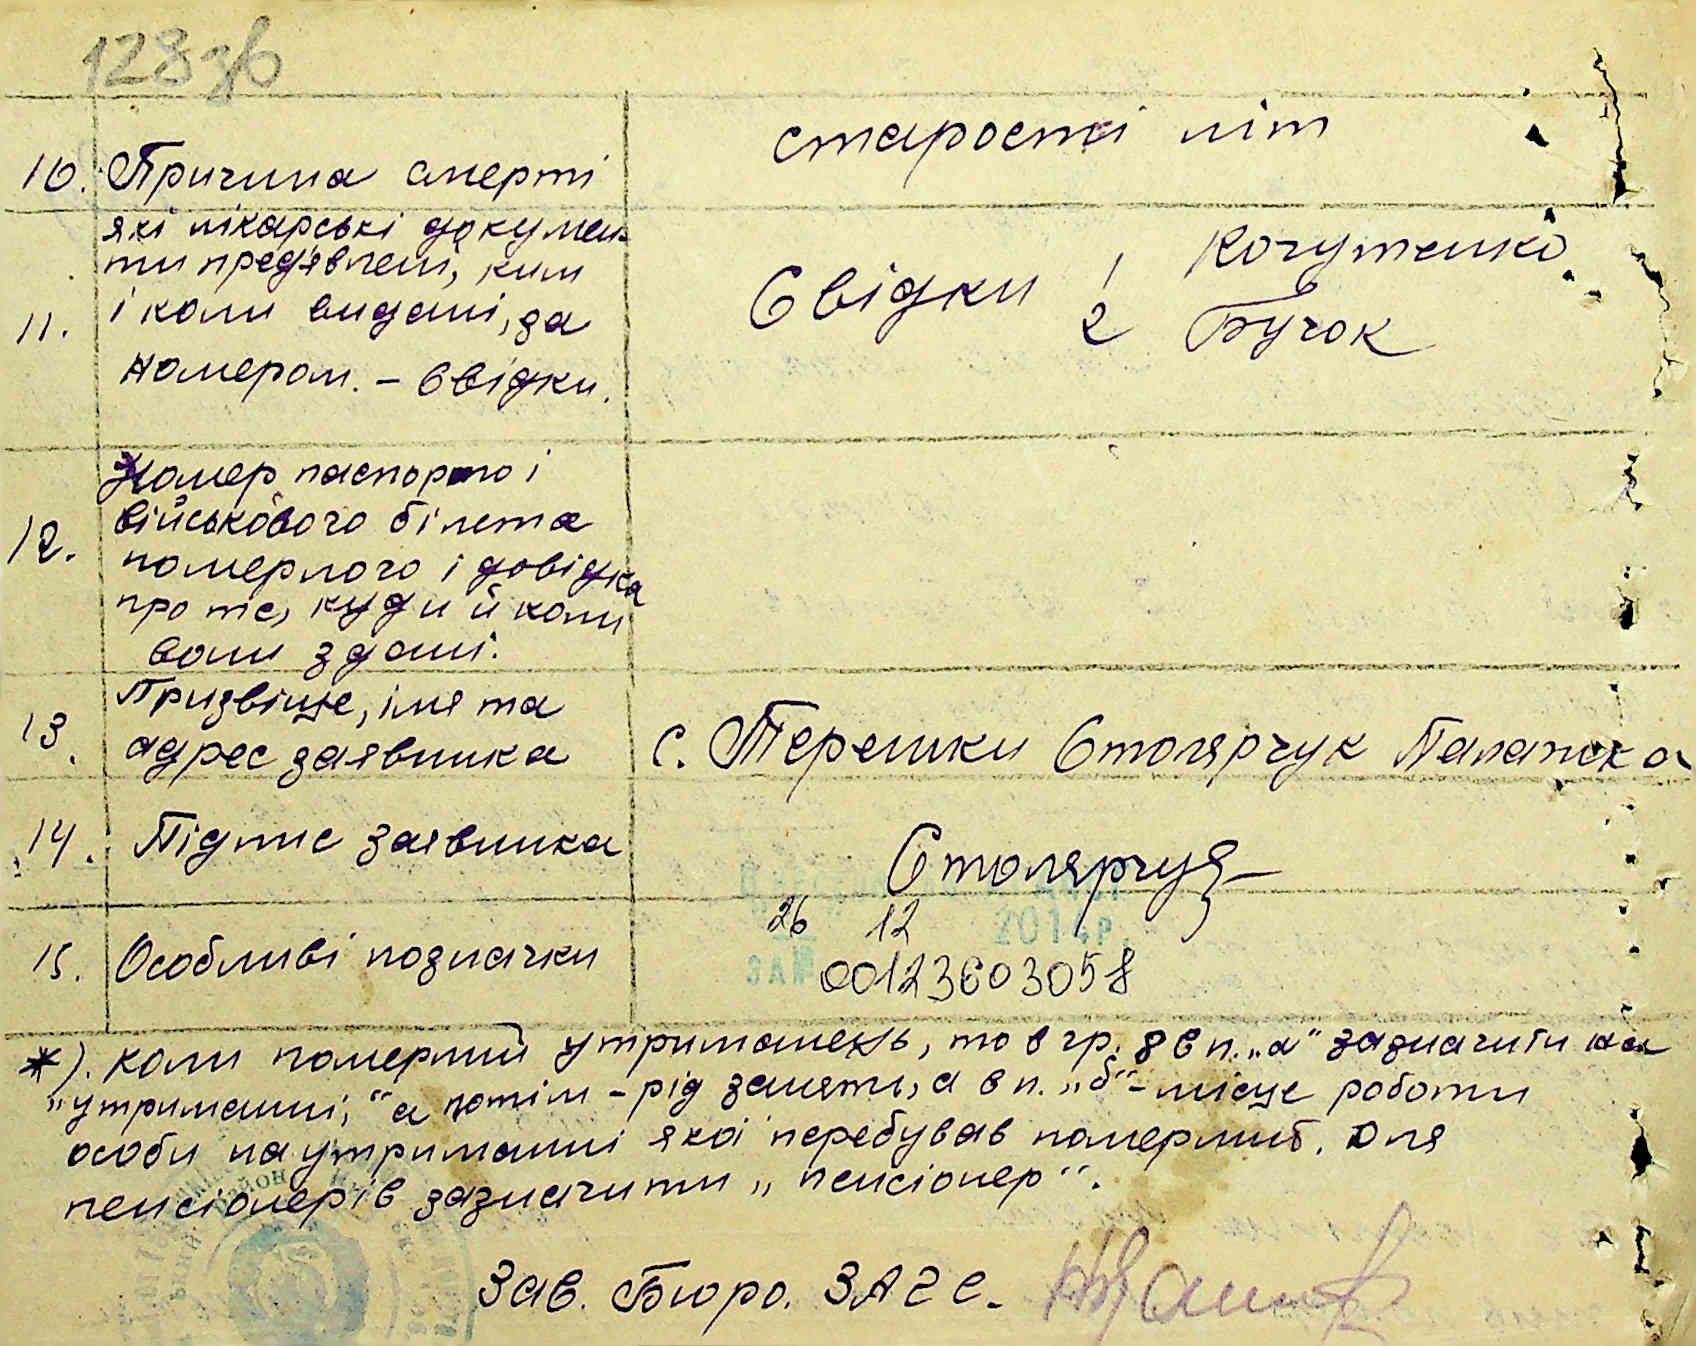 128зв
старості літ
10. Причина смерті
які лікарські докумен-
ти предявлені, ким
11. і коли видані, за
номером. – Свідки.
Свідки 1 Когутенко
2 Бучок
Номер паспорто і
військового білета
12. померлого і довідка
про те, куди й коли
вони здані.
13. Призвіще, імя та
адрес заявника
с. Терешки Столярчук Палажка
14. Підпис заявника
Столярчук
26 12 2014р.
15. Особливі позначки
00123603058
*). коли померлий утриманець, то в гр. 8 в п. „а" зазначити на
„утриманні," а потім – рід занять, а в п. „б" – місце роботи
особи на утриманні якої перебував померлий. Для
пенсіонерів зазначити „пенсіонер".
Зав. Бюро. ЗАГС.